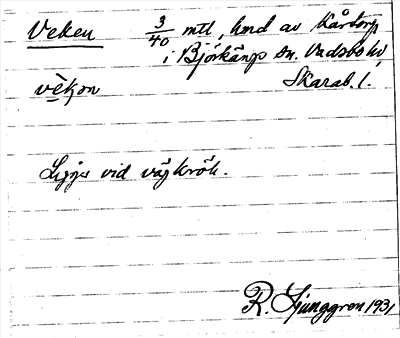 Veken 3/40 mtl, hmd av Kårtorp
i Björkängs sn. Vadsbo hd,
vèkon Skarab. l.
Ligger vid vägkrök.
R. Ljunggren 1931